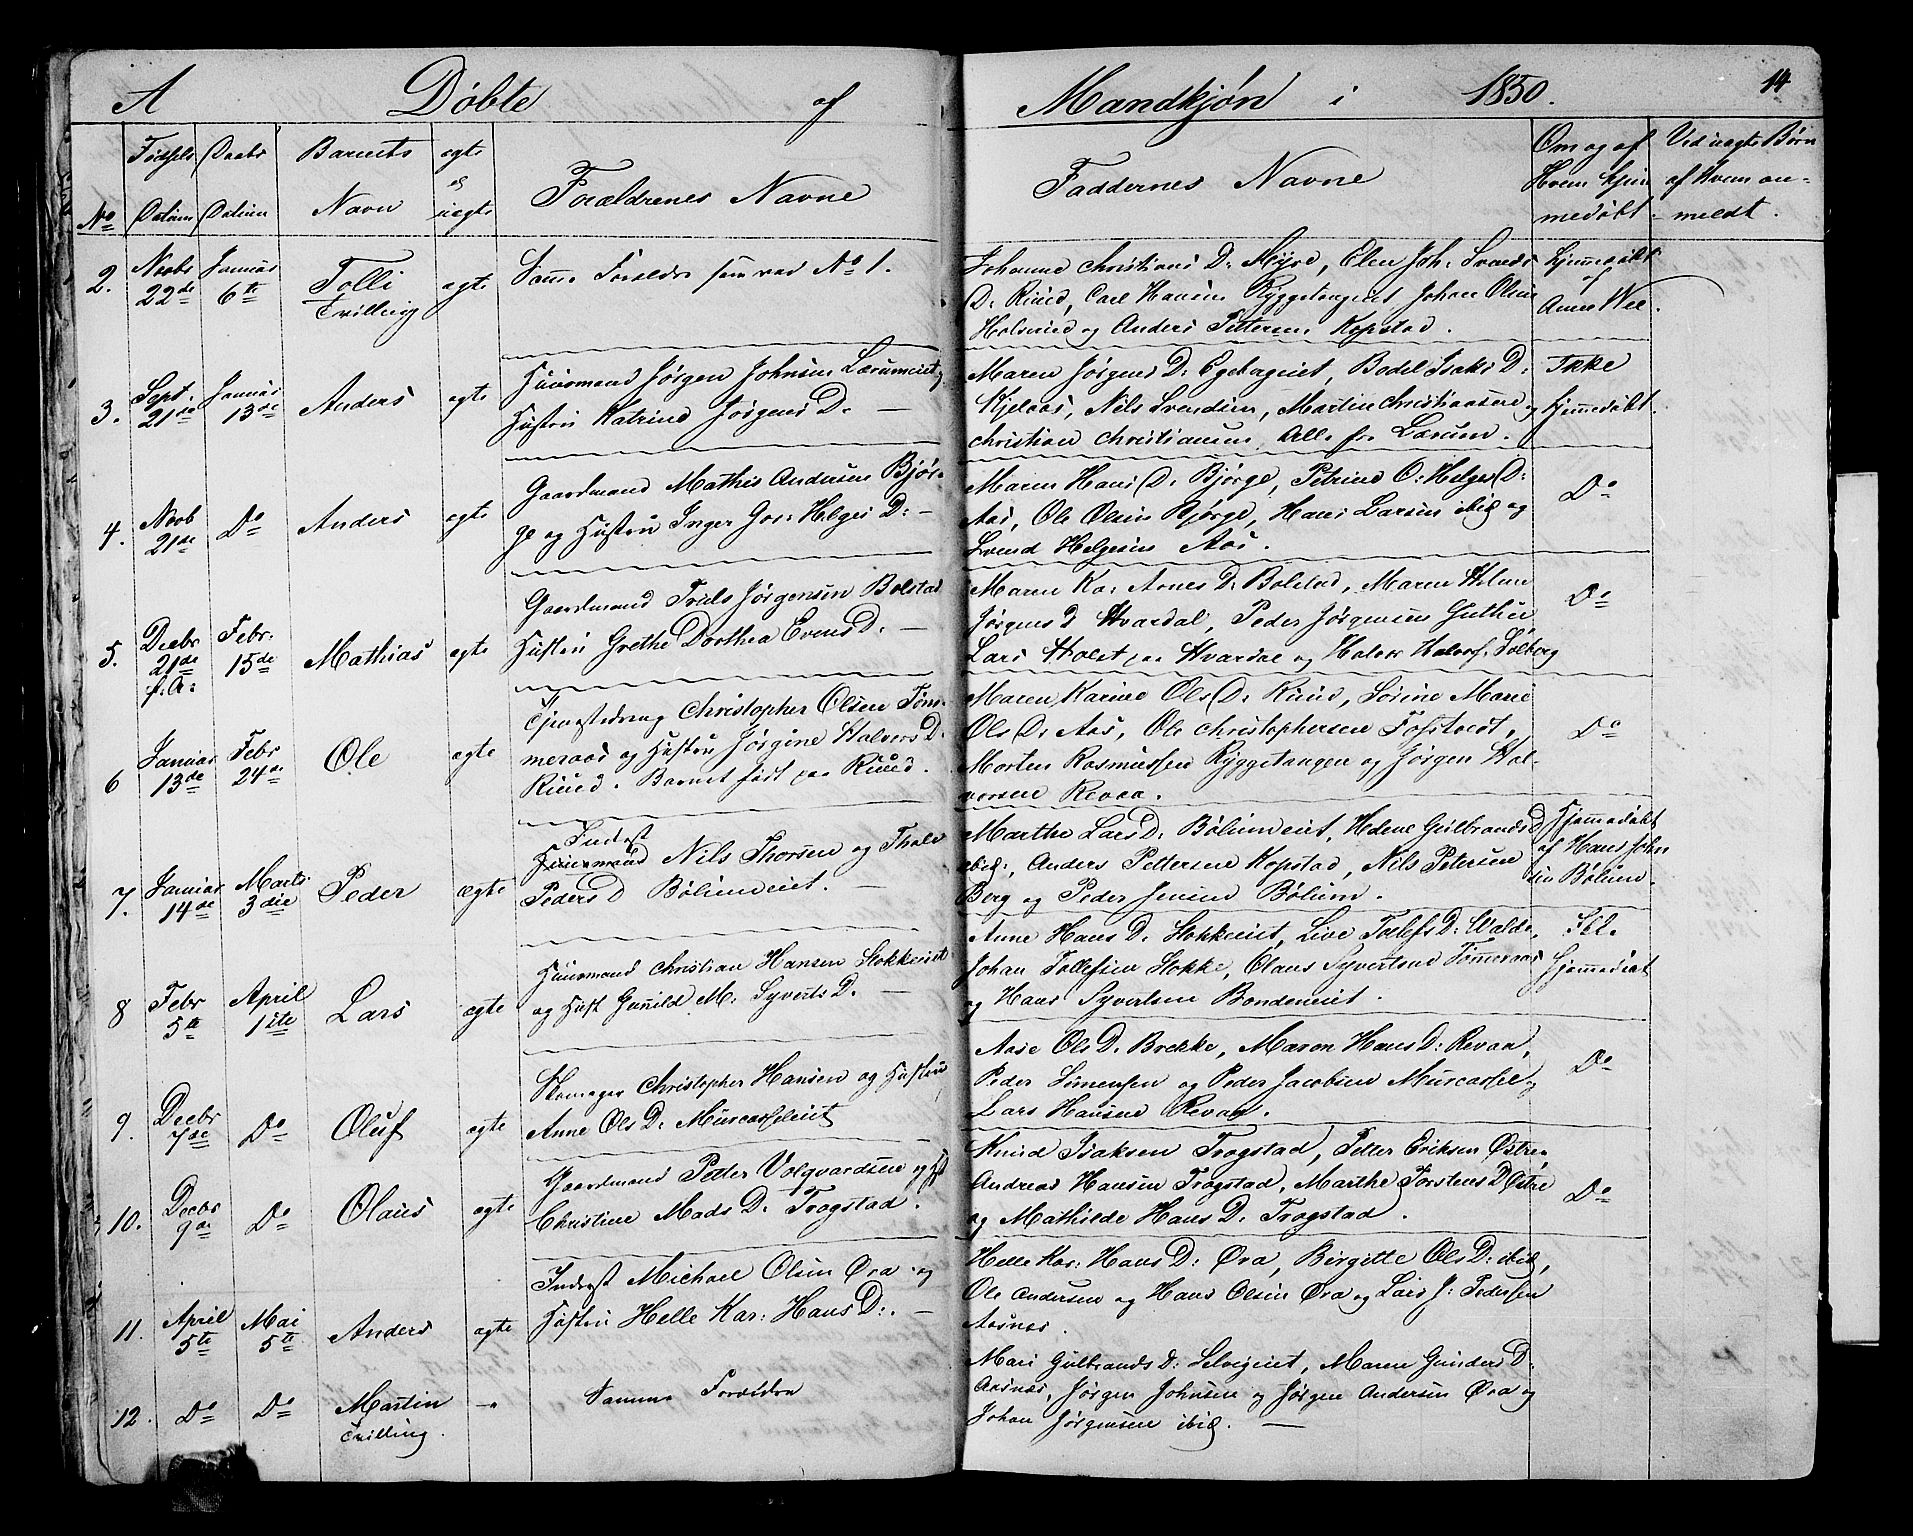 A Døbte af Mandkjøn i 1850. 14
No Fødsels Datum Daabs Datum Barnets Navn ægte el uægte Forældrenes Navne Faddernes Navne Om og af Hvem hjemmedøbt. Ved uægte Børn af Hvem anmeldt.
2. Novbr 22de Januar 6te Tolli Tvilling ægte Samme Forældre som ved No 1.
Johanne Christians D: Myre, Olea Joh: Svends
D. Ruud, Carl Hansen Ryggetangeiet Johan Olsen
Holserud og Anders Pettersen Kopstad.
Hjemmedøbt af Anne Wee.
3. Sept. 21de Januar 13de Anders ægte
Huusmand Jørgen Johnsen Lærumeiet og
Hustru Katrine Jørgens D. —
Maren Jørgens D: Egebergeiet, Bodel Isaks D:
Kjelaas, Nils Svendsen, Martin Christiansen og
Christian Christiansen Alle fra Lærum.
Ikke hjemmedøbt.
4. Novb 21de Do Anders ægte
Gaardmand Mathis Andersen Bjør-
ge og Hustru Inger Gos: Helges D: —
Maren Hans D. Bjørge, Petrine O: Helges D:
Aas, Ole Olsen Bjørge, Hans Larsen ibid og
Svend Helgesen Aas.
Do
5. Decbr 21de f. A: Febr. 15de Mathias ægte
Gaardmand Truls Jørgensen Bolstad
Hustru Grethe Dorthea Evens D. —
Maren Ka: Arnes D: Bolstad, Maren Helene
Jørgens D Hvardal, Peder Jørgensen Guthu
Lars Holst paa Hvardal og Halvor Halvors. Solberg
Do
6 Januar 13de Febr 24de Ole ægte
Tjenestedreng Christopher Olsen Tøm-
meraas og Hustru Jørgine Halvors D:
Ruud. Barnet født paa Ruud.
Maren Karine Ols D: Ruud, Sørine Marie
Ols D: Aas, Ole Christophersen Fostvedt,
Morten Rasmussen Ryggetangen og Jørgen Hal-
vorsen Revaa.
Do
7. Januar 14de Marts 3die Peder ægte
Inderst
Huusmand Nils Thorsen og Thale
Peders D Bølumeiet. —
Marthe Lars D. Bølumeiet, Helene Gulbrands D
ibid:, Anders Pettersen Kopstad, Nils Petersen
Berg og Peder Jensen Bølum.
Hjemmedøbt af Hans Johnsen Bølum.
8 Febr 5te April 1ste Lars ægte
Huusmand Christian Hansen Stokkeeiet
og Hust Gunild M: Syverts D. —
Anne Hans D. Stokkeeiet, Live Tollefs D: Walde,
Johan Tollefsen Stokke, Olaus Syvertsen Tømmeraas
og Hans Syvertsen Bondeneiet.
Ikke Hjemmedøbt
9. Decbr 7de Do Oluf ægte
Skomager Christopher Hansen og Hustru
Anne Ols D. Murcasseleiet
Aase Ols D. Brekke, Maren Hans D: Revaa,
Peder Simensen og Peder Jacobsen Murcassel og
Lars Hansen Revaa.
Do
10. Decbr 9de Do Olaus ægte
Gaardmand Petter Volqvardsen og Hst
Christine Mads D. Trogstad.
Knud Isaksen Trogstad, Petter Eriksen Østre,
Andreas Hansen Trogstad, Marthe Torstens D Østre
og Mathilde Hans D. Trogstad.
Do
11. April 5te Mai 5te Anders ægte
Inderst Michael Olsen Øra og
Hustru Helle Kar: Hans D:. —
Helle Kar: Hans D: Øra, Birgitte Ols D: ibid,
Ole Andersen og Hans Olsen Øra og Lars J: Pedersen
Aasnæs.
12. Do Do Martin Tvilling. —"—
Samme Forældre
Mari Gulbrands D: Selvigeiet, Maren Gunders D:
Aasnæs, Jørgen Johnsen og Jørgen Andersen Øra og
Johan Jørgensen ibid. —